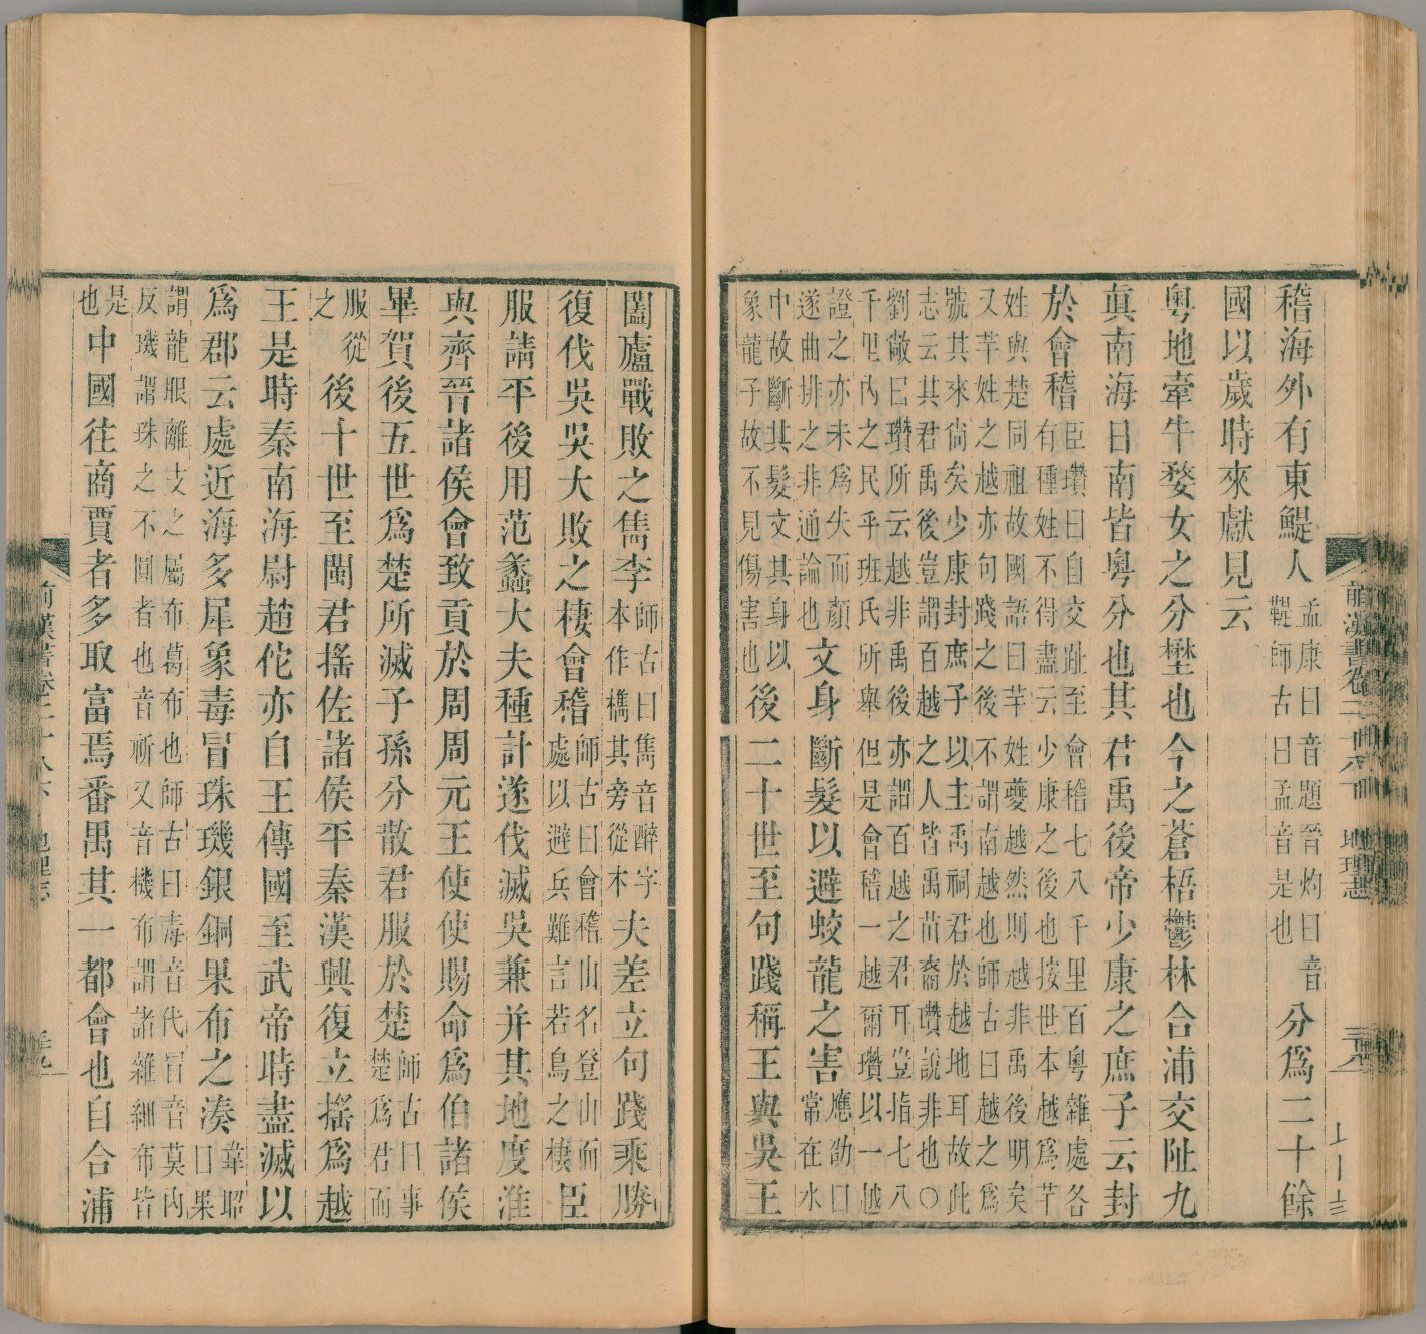 前漢書卷二十八下 地理志
稽海外有東鯷人孟康曰音題晉灼曰音鞮師古曰孟音是也分爲二十餘
國以歲時來獻見云
粵地牽牛婺女之分壄也今之蒼梧鬱林合浦交阯九
眞南海日南皆粵分也其君禹後帝少康之庶子云封
於會稽臣瓚曰自交阯至會稽七八千里百粵雜處各有種姓不得盡云少康之後也按世本越爲芊
姓與楚同祖故國語曰芊姓夔越然則越非禹後明矣
又芊姓之越亦句踐之後不謂南越也師古曰越之爲
號其來尙矣少康封庶子以主禹祠君於越地耳故此
志云其君禹後豈謂百越之人皆禹苗裔瓚說非也○
劉敞曰瓚所云越非禹後亦謂百越之君耳豈指七八
千里內之民乎班氏所舉但是會稽一越爾瓚以一越
證之亦未爲失而顏遂曲排之非通論也文身斷髮以避蛟龍之害應劭曰常在水
中故斷其髮文其身以象龍子故不見傷害也後二十世至句踐稱王與吳王
闔廬戰敗之雋李師古曰雋音醉字本作檇其旁從木夫差立句踐乘勝
復伐吳吳大敗之棲會稽師古曰會稽山名登山而處以避兵難言若鳥之棲臣
服請平後用范蠡大夫種計遂伐滅吳兼并其地度淮
與齊晉諸侯會致貢於周周元王使使賜命爲伯諸侯
畢賀後五世爲楚所滅子孫分散君服於楚師古曰事楚爲君而
服從之後十世至閩君搖佐諸侯平秦漢興復立搖爲越
王是時秦南海尉趙佗亦自王傳國至武帝時盡滅以
爲郡云處近海多犀象毒冒珠璣銀銅果布之湊韋昭曰果
謂龍眼離支之屬布葛布也師古曰毒音代冒音莫內
反璣謂珠之不圓者也音祈又音機布謂諸雜細布皆
是也中國往商賈者多取富焉番禺其一都會也自合浦
前漢書卷二十八下 地理志